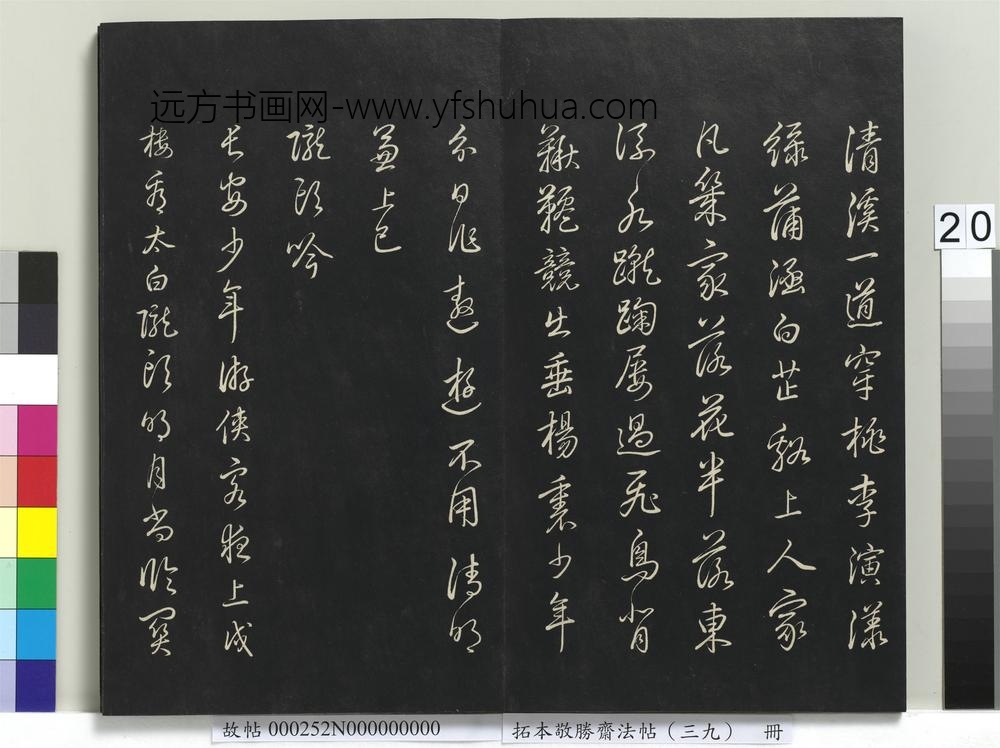 远方书画网-www.yfshuhua.com
清溪一道穿桃李演漾
綠蒲涵白芷谿上人家
凡幾家落花半落東
流水蹴踘屢過飛鳥背
鞦韆競出垂楊裏少年
分日作遨遊不用清明
兼上巳
隴頭吟
長安少年游俠客夜上戍
樓看太白隴頭明月尚臨關
20
故帖 000252N000000000
拓本敬勝齋法帖（三九） 冊